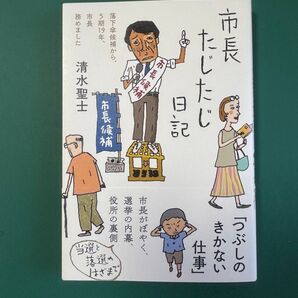 市長
たじたじ
日記
落下傘候補から、
5期19年、
市長
務めました
清水聖士
市長候補
市長候補
「つぶしの
きかない
仕事」
市長がぼやく、
選挙の内幕、
役所の裏側
当選と
落選の
はざまで